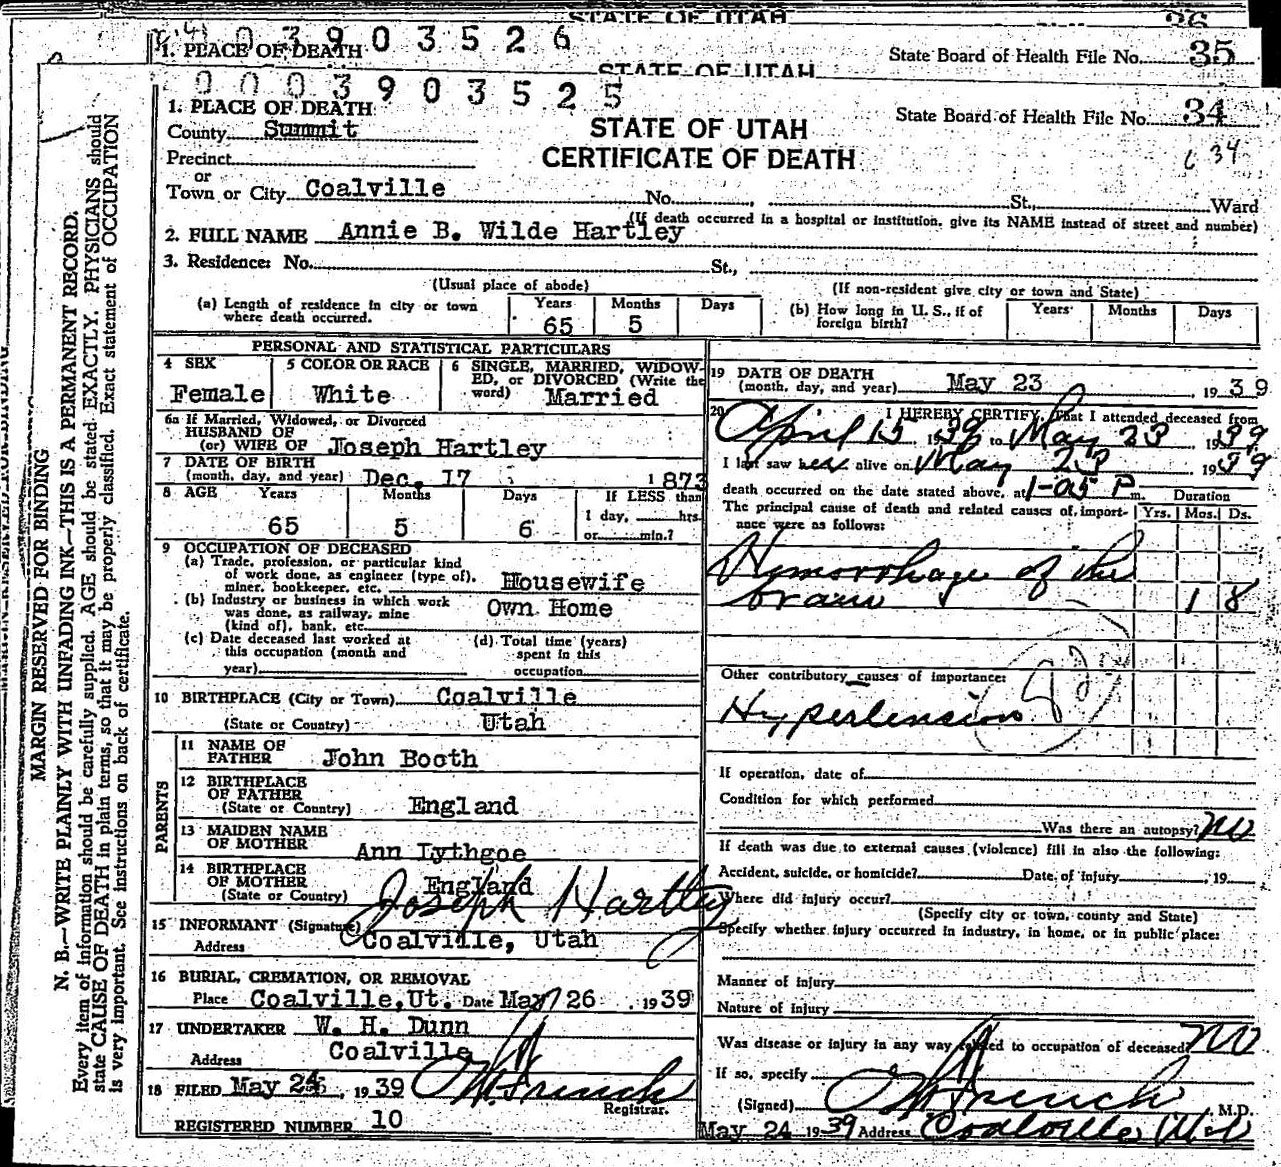 STATE OF UTAH
36
0 3 9 0 3 5 2 6
1. PLACE OF DEATH
State Board of Health File No. 35
STATE OF UTAH
0 0 0 3 9 0 3 5 2 5
1. PLACE OF DEATH
State Board of Health File No. 34
County Summit
STATE OF UTAH
CERTIFICATE OF DEATH
34
Precinct
or
Town or City Coalville No. , St., Ward
(If death occurred in a hospital or institution, give its NAME instead of street and number)
2. FULL NAME Annie B. Wilde Hartley
3. Residence: No. St.,
(Usual place of abode) (If non-resident give city or town and State)
(a) Length of residence in city or town where death occurred. Years 65 Months 5 Days
(b) How long in U. S., if of foreign birth? Years Months Days
PERSONAL AND STATISTICAL PARTICULARS
4 SEX Female
5 COLOR OR RACE White
6 SINGLE, MARRIED, WIDOWED, or DIVORCED (Write the word) Married
6a If Married, Widowed, or Divorced
HUSBAND OF
(or) WIFE OF Joseph Hartley
7 DATE OF BIRTH
(month, day, and year) Dec. 17 1873
8 AGE Years Months Days If LESS than
65 5 6 1 day, hrs.
or min.?
9 OCCUPATION OF DECEASED
(a) Trade, profession, or particular kind
of work done, as engineer (type of), Housewife
miner, bookkeeper, etc.
(b) Industry or business in which work Own Home
was done, as railway, mine
(kind of), bank, etc.
(c) Date deceased last worked at
this occupation (month and
year)
(d) Total time (years)
spent in this
occupation
10 BIRTHPLACE (City or Town) Coalville
(State or Country) Utah
PARENTS
11 NAME OF
FATHER John Booth
12 BIRTHPLACE
OF FATHER
(State or Country) England
13 MAIDEN NAME
OF MOTHER Ann Lythgoe
14 BIRTHPLACE
OF MOTHER
(State or Country) England
15 INFORMANT (Signature) Joseph Hartley
Address Coalville, Utah
16 BURIAL, CREMATION, OR REMOVAL
Place Coalville, Ut. Date May 26 1939
17 UNDERTAKER W. H. Dunn
Address Coalville
18 FILED May 24, 1939
Registrar.
REGISTERED NUMBER 10
19 DATE OF DEATH
(month, day, and year) May 23, 1939
20 I HEREBY CERTIFY, That I attended deceased from
April 15 1939 to May 23 1939
I last saw her alive on May 23 1939
death occurred on the date stated above, at 1-05 P m. Duration
The principal cause of death and related causes of importance were as follows: Yrs. Mos. Ds.
Hemorrhage of the
brain 1 8
Other contributory causes of importance:
Hypertension
If operation, date of
Condition for which performed
Was there an autopsy? no
If death was due to external causes (violence) fill in also the following:
Accident, suicide, or homicide? Date of injury 19
Where did injury occur?
(Specify city or town, county and State)
Specify whether injury occurred in industry, in home, or in public place:
Manner of injury
Nature of injury
Was disease or injury in any way related to occupation of deceased? no
If so, specify
(Signed) M.D.
May 24 1939 Address Coalville
MARGIN RESERVED FOR BINDING
N. B.—WRITE PLAINLY WITH UNFADING INK—THIS IS A PERMANENT RECORD.
Every item of information should be carefully supplied. AGE should be stated EXACTLY. PHYSICIANS should
state CAUSE OF DEATH in plain terms, so that it may be properly classified. Exact statement of OCCUPATION
is very important. See instructions on back of certificate.